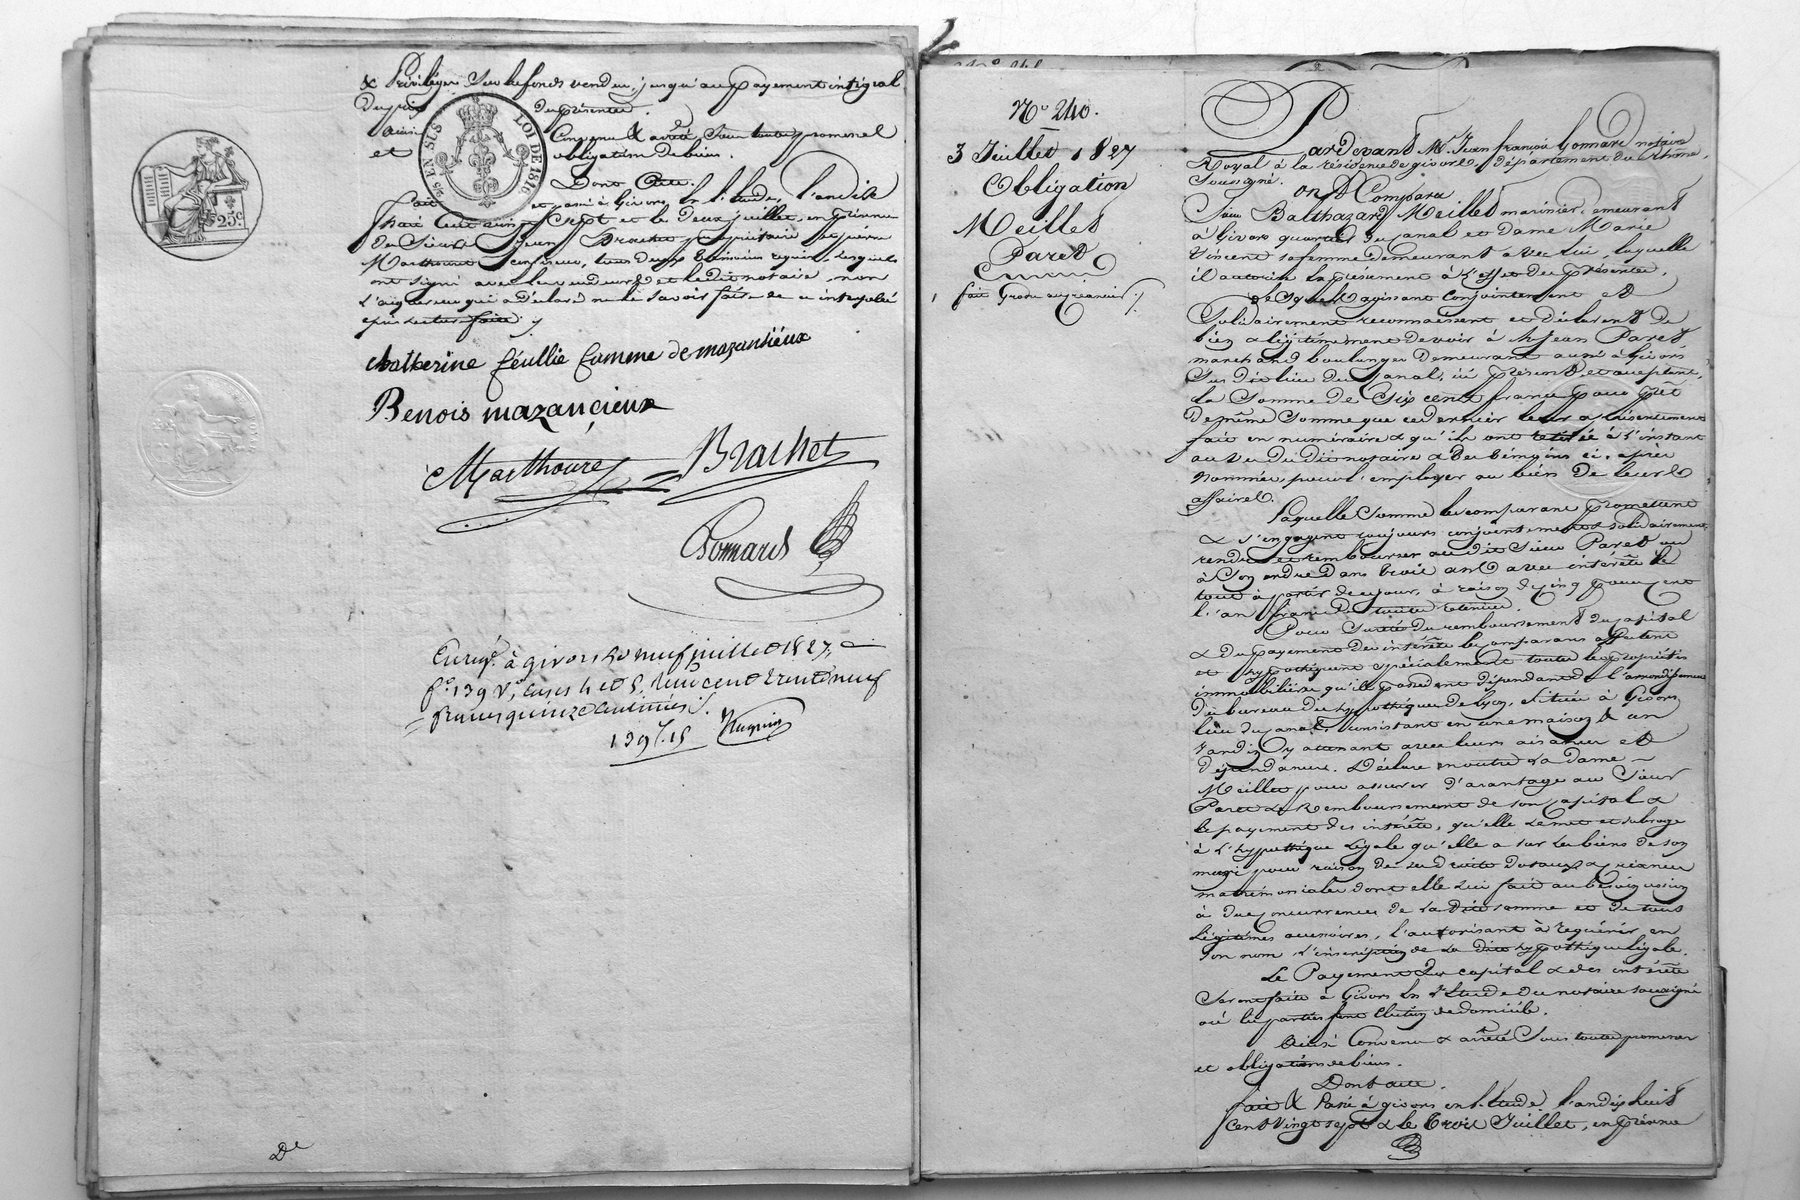 & Privilége sur le fonds vendu, jusqu'au payement intégral
du prix des présentes.
Ainsi Convenu & arrété sous toutes promesses
et obligation de biens.
Dont Acte.
Fait et passé à Givors En l'Etude, l'an dix
huit Cent vingt sept et le Deux juillet, en présence
de Sieurs Jean Brachet propriétaire & pierre
Marthoure, tous deux témoins requis, lesquels
ont signé avec les vendeurs et le dit notaire, non
l'acquereur qui a déclaré ne le savoir faire de ce interpellé
après lecture faite ./.
25 EN SUS
LOI DE 1816
25c.
Chatherine féullie famme de mazansieux
Benois mazancieux
Marthoure
Brachet
Gonnard
Enregt. à givors le neuf juillet 1827,
fo. 139 vo. cases 4 et 5, Reçu cent trente neuf
francs quinze centimes.
139f.15
De
No. 240.
3 Juillet 1827
Obligation
Meillet
Paret
fait Grosse au créancier ./.
Pardevant Me. Jean françois Gonnard notaire
Royal à la résidence de givors, département du Rhône,
Soussigné.
ont Comparu
Sieur Balthazard Meillet marinier, demeurant
à Givors quartier du Canal et Dame Marie
Vincent sa femme demeurant avec lui, laquelle
il autorise expressément à l'effet des présentes,
Lesquels agissant conjointement et
Solidairement reconnaissent et déclarent de
bien & légitimement devoir à Mr Jean Paret
marchand boulanger demeurant aussi à Givors
Susdit lieu du Canal, ici présent, et acceptant,
La Somme de Six cents francs pour prêt
de même Somme que ce dernier leur a présentement
fait en numéraire & qu'ils ont retirée à l'instant
au vu du dit notaire & des témoins ci-après
nommés, pour l'employer au bien de leurs
affaires.
Laquelle Somme les comparans promettent
& s'engagent toujours conjointement & solidairement,
rendre et rembourser au dit Sieur Paret ou
à Son ordre Dans trois ans avec intérêts le
tout à partir de ce jour, à raison de cinq pour cent
l'an franc de toute retenue.
Pour Sureté du remboursement du capital
& du payement des intérêts les comparans affectent
et hypothèquent spécialement toutes les propriétés
immobilières qu'ils possèdent dépendantes de l'arrondissement
du bureau des hypothèques de Lyon, situées à Givors
lieu du canal, consistant en une maison & un
Jardin y attenant avec leurs aisances et
dépendances. Déclare en outre la dame
Meillet pour assurer d'avantage au Sieur
Paret le Remboursement de son capital &
le payement des intérêts, qu'elle le met et subroge
à l'hypothèque légale qu'elle a sur les biens de son
mari pour raison de ses droits dotaux & créances
matrimoniales dont elle lui fait au besoin cession
à due concurrence de la dite somme et de tous
légitimes accessoires, l'autorisant à requérir en
son nom l'inscription de la dite hypothèque légale.
Le Payement du capital & des intérêts
Seront faits à Givors En l'Etude du notaire soussigné
où les parties font élection de domicile.
Ainsi Convenu & arrêté Sous toutes promesses
et obligations de biens.
Dont acte.
fait & Passé à givors en l'Etude, l'an dix huit
cent vingt sept & le trois Juillet, en présence